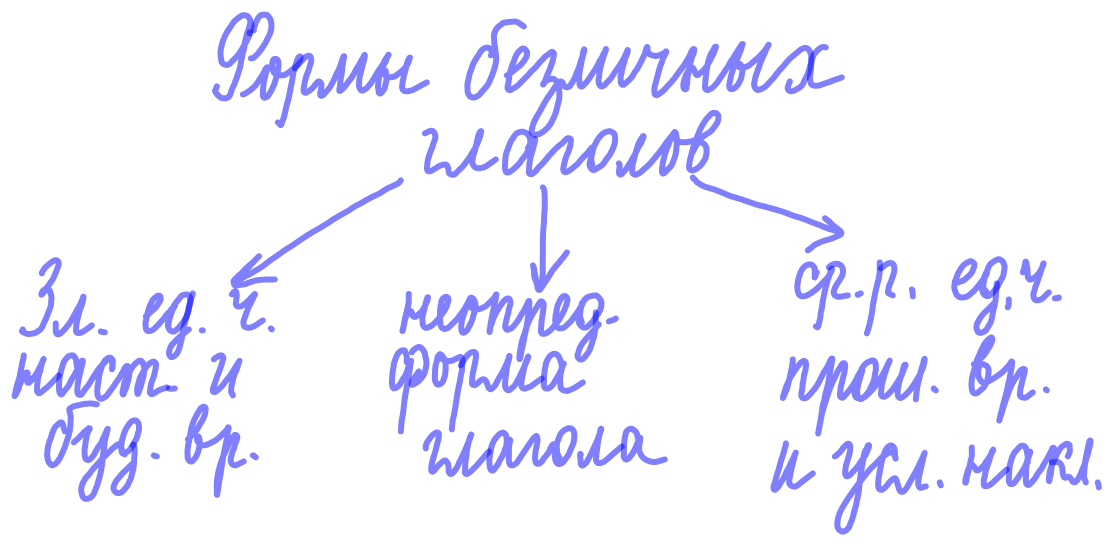 Формы безличных
глаголов
3 л. ед. ч.
наст. и
буд. вр.
неопред.
форма
глагола
ср. р. ед. ч.
прош. вр.
и усл. накл.